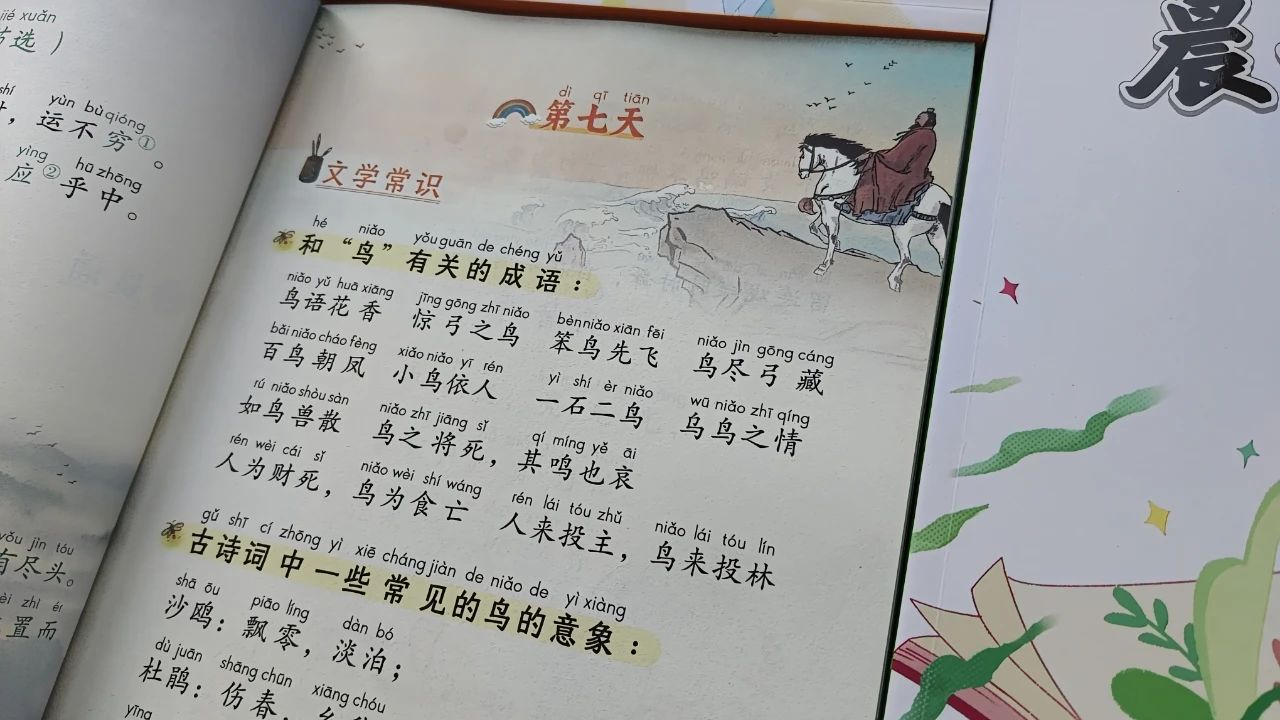 jié xuǎn
节选）
yùn bù qióng
，运不穷①。
yìng hū zhōng
应②乎中。
yǒu jìn tóu
有尽头。
置而
dì qī tiān
第七天
文学常识
hé niǎo yǒu guān de chéng yǔ
和“鸟”有关的成语：
niǎo yǔ huā xiāng jīng gōng zhī niǎo bèn niǎo xiān fēi niǎo jìn gōng cáng
鸟语花香 惊弓之鸟 笨鸟先飞 鸟尽弓藏
bǎi niǎo cháo fèng xiǎo niǎo yī rén yì shí èr niǎo wū niǎo zhī qíng
百鸟朝凤 小鸟依人 一石二鸟 乌鸟之情
rú niǎo shòu sàn niǎo zhī jiāng sǐ qí míng yě āi
如鸟兽散 鸟之将死，其鸣也哀
rén wèi cái sǐ niǎo wèi shí wáng rén lái tóu zhǔ niǎo lái tóu lín
人为财死，鸟为食亡 人来投主，鸟来投林
gǔ shī cí zhōng yì xiē cháng jiàn de niǎo de yì xiàng
古诗词中一些常见的鸟的意象：
shā ōu piāo líng dàn bó
沙鸥：飘零，淡泊；
dù juān shāng chūn xiāng chóu
杜鹃：伤春，乡
yīng
晨